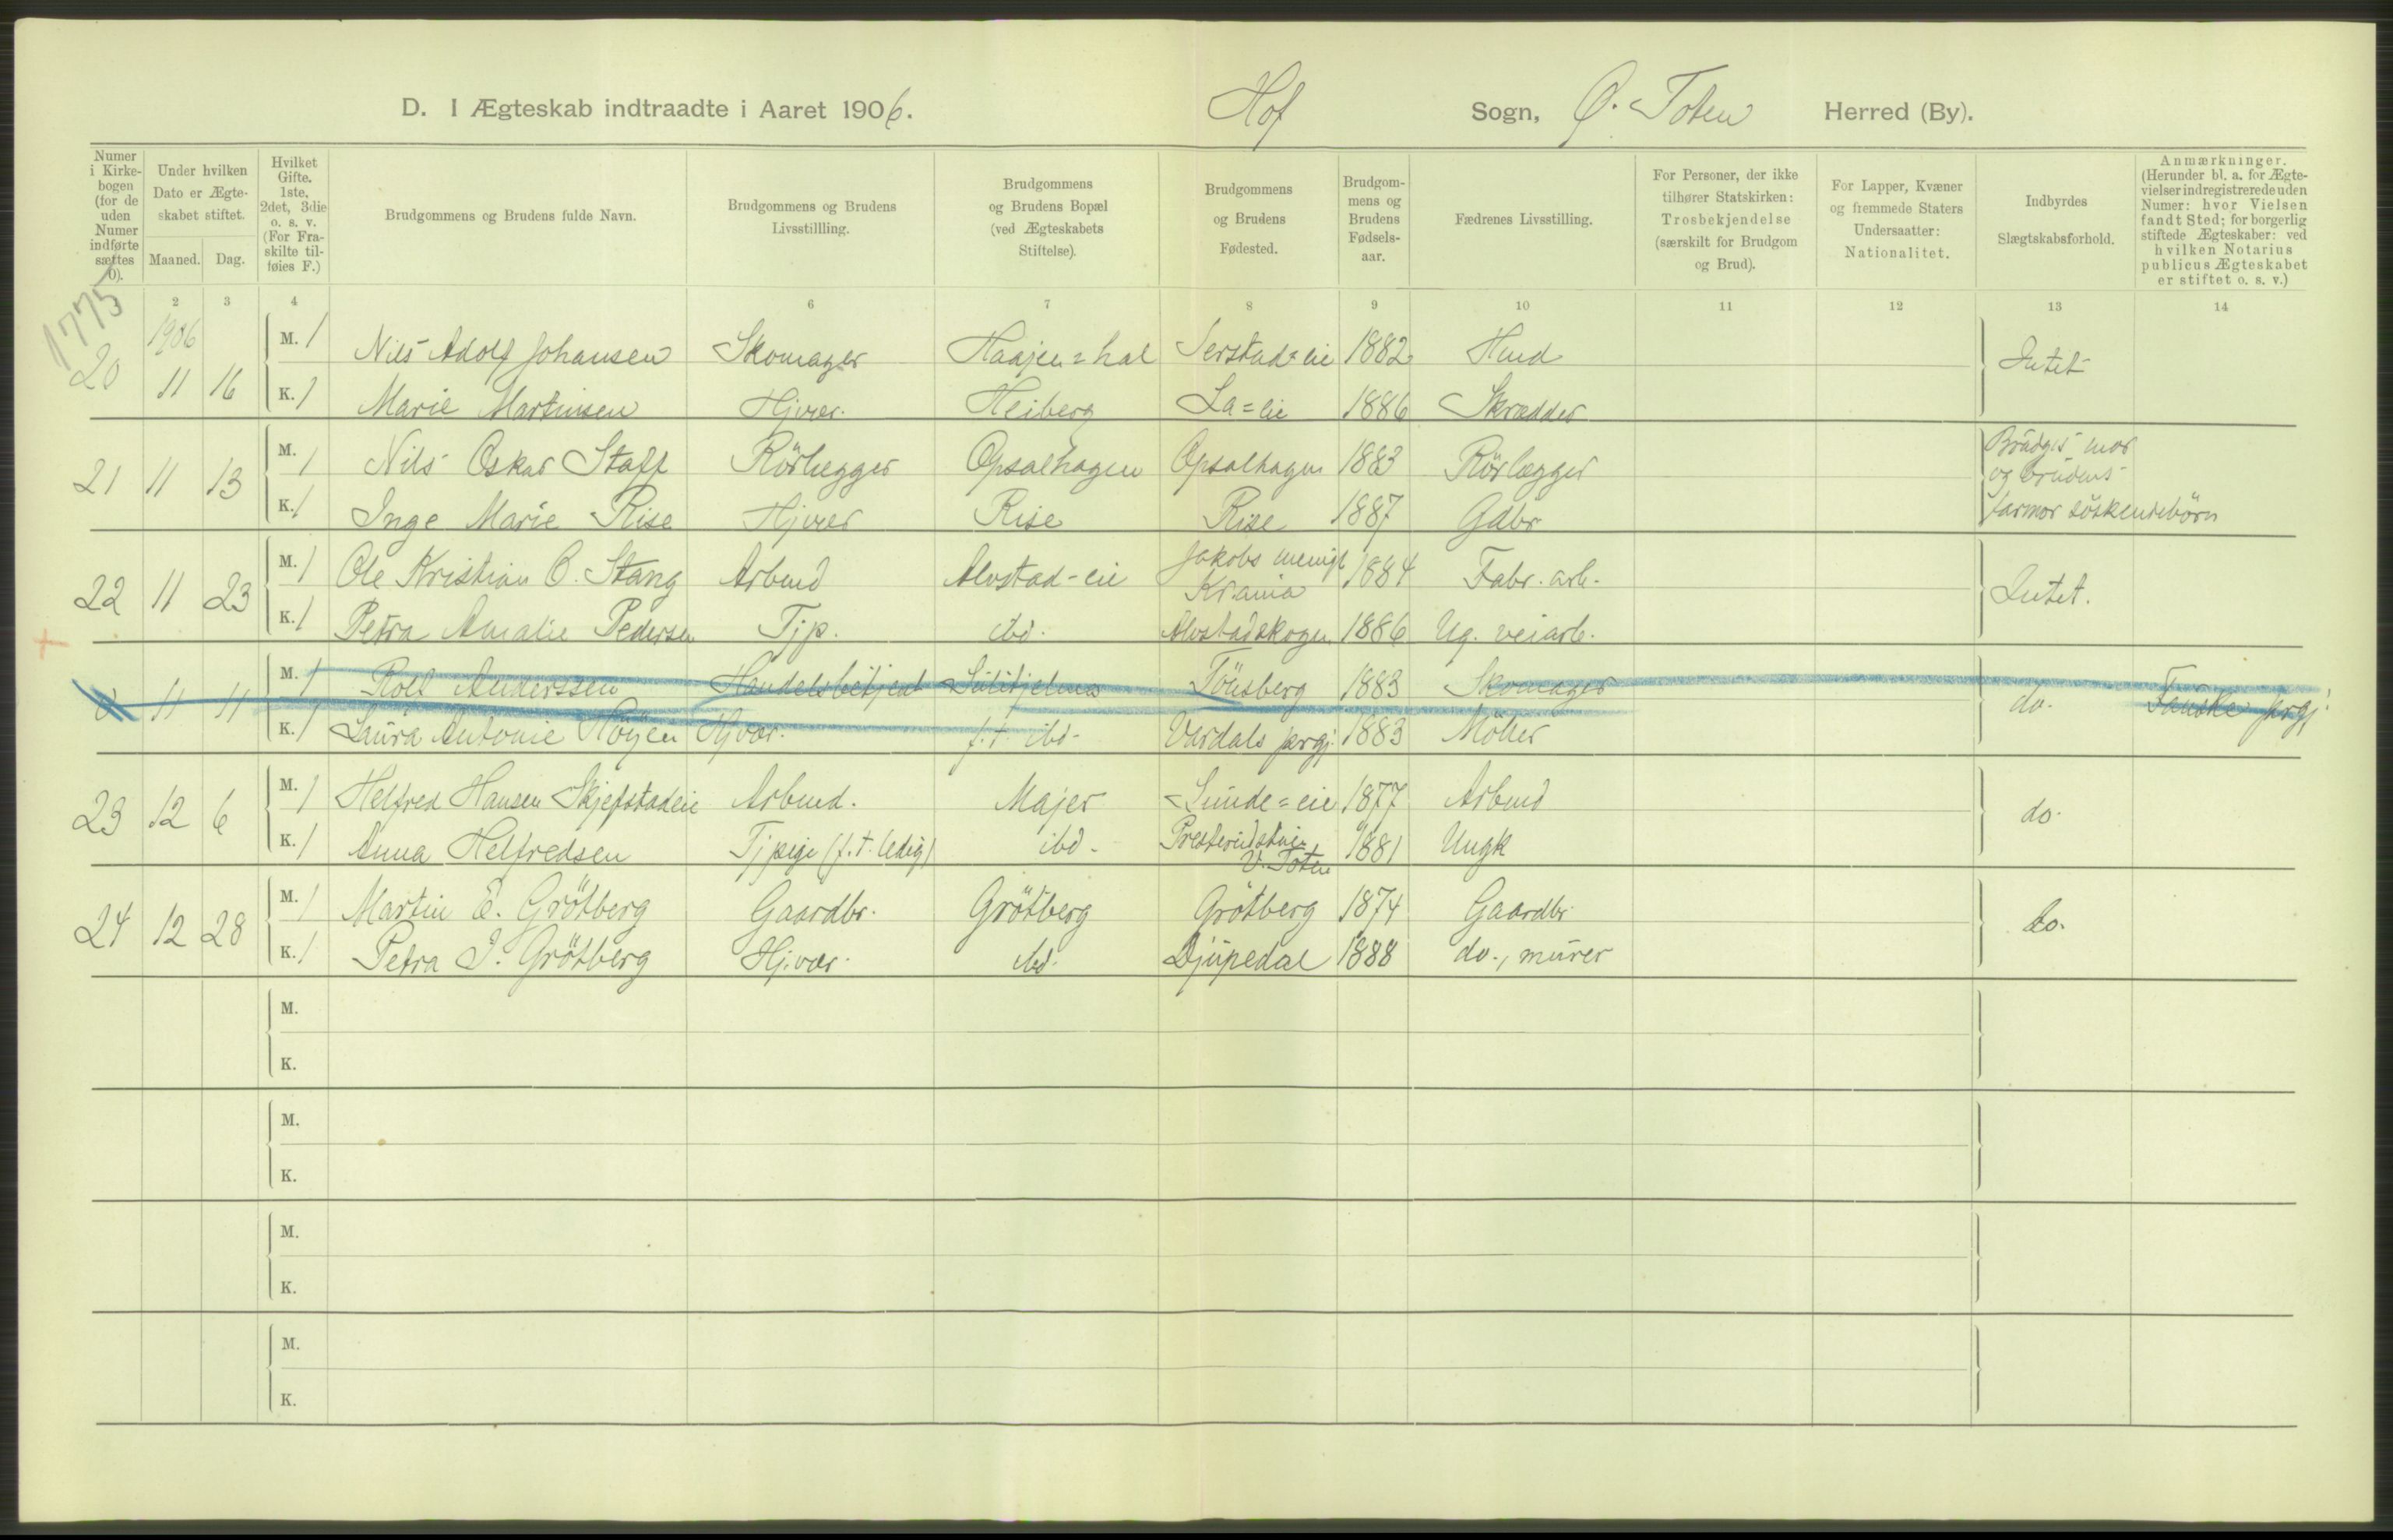 D. I Ægteskab indtraadte i Aaret 1906. Hof Sogn, Ø. Toten Herred (By).
Numer i Kirkebogen (for de uden Numer indførte sættes 0).
Under hvilken Dato er Ægteskabet stiftet.
Maaned. Dag.
Hvilket Gifte. 1ste, 2det, 3die o. s. v. (For Fraskilte tilføies F.)
Brudgommens og Brudens fulde Navn.
Brudgommens og Brudens Livsstillling.
Brudgommens og Brudens Bopæl (ved Ægteskabets Stiftelse).
Brudgommens og Brudens Fødested.
Brudgommens og Brudens Fødselsaar.
Fædrenes Livsstilling.
For Personer, der ikke tilhører Statskirken: Trosbekjendelse (særskilt for Brudgom og Brud).
For Lapper, Kvæner og fremmede Staters Undersaatter: Nationalitet.
Indbyrdes Slægtskabsforhold.
Anmærkninger. (Herunder bl. a. for Ægtevielser indregistrerede uden Numer: hvor Vielsen fandt Sted; for borgerlig stiftede Ægteskaber: ved hvilken Notarius publicus Ægteskabet er stiftet o. s. v.)
2 3 4 6 7 8 9 10 11 12 13 14
1775
1906
20 11 16 M. 1 Nils Adolf Johansen Skomager Haajen=hal Serstad=eie 1882 Hmd Intet
K. 1 Marie Martinsen Hjvær. Heiberg La=eie 1886 Skrædder
21 11 13 M. 1 Nils Oskar Staff Rörlægger Opsalhagen Opsalhagen 1883 Rörlægger Brudgs mor
og brudens
farmor söskendebörn
K. 1 Inge Marie Rise Hjvær Rise Rise 1887 Gdbr
22 11 23 M. 1 Ole Kristian O. Stang Arbmd Alvstad-eie Jakobs menigh
Kr.ania 1884 Fabr. arb. Intet.
K. 1 Petra Amalie Pedersen Tjp. ibd. Alvstadskogen 1886 Ug. veiarb.
0 11 11 M. 1 Rolf Anderssen Handelsbetjent Sulitjelma Tönsberg 1883 Skomager do. Fauske prgj.
K. 1 Laura Antonie Höyen Hjvær. f.t. ibd. Vardals prgj. 1883 Möller
23 12 6 M. 1 Helfred Hansen Skjefstadeie Arbmd. Majer Sunde=eie 1877 Arbmd do.
K. 1 Anna Helfredsen Tjpige (f.t. ledig) ibd.
V. Toten 1881 Ungk
24 12 28 M. 1 Martin E. Grötberg Gaardbr. Grötberg Grötberg 1874 Gaardbr. do.
K. 1 Petra J. Grötberg Hj.vær. ibd. Djupedal 1888 do., murer
M.
K.
M.
K.
M.
K.
M.
K.